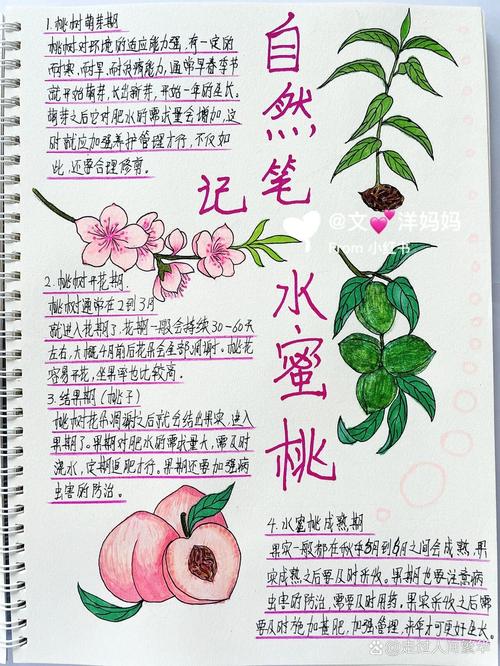 自然笔记
水蜜桃
1. 桃树萌芽期
桃树对环境的适应能力强,有一定的
耐寒,耐旱,耐水碱能力,通常早春季节
就开始萌芽,长出新芽,开始一年的生长。
萌芽之后它对肥水的需求量会增加,这
时就应加强养护管理才行,不仅如
此,还要合理修剪。
@文💕洋妈妈
From 小红书
2. 桃树开花期.
桃树通常在2到3月
就进入花期了.花期一般会持续30-60天
左右,大概4月前后花朵会全部凋谢。桃花
容易开花,坐果率也比较高.
3. 结果期(桃子)
桃树花朵凋谢之后就会结出果实,进入
果期了。果期对肥水的需求量大,需及时
浇水,定期追肥才行。果期还要加强病
虫害的防治。
4. 水蜜桃成熟期
果实一般都在秋季8月到9月之间会成熟,果
实成熟之后要及时采收。果期也要注意病
虫害的防治,需要及时用药。果实采收之后需
要及时施加基肥,加强管理,来年才可更好生长。